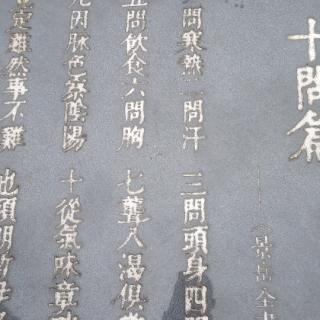 十問篇
景岳全
問寒熱二問汗
三問頭身四
問飲食六問胸
七聾八渴俱
因脉色察陰陽
十從氣味章
定雖然事不難
也須明